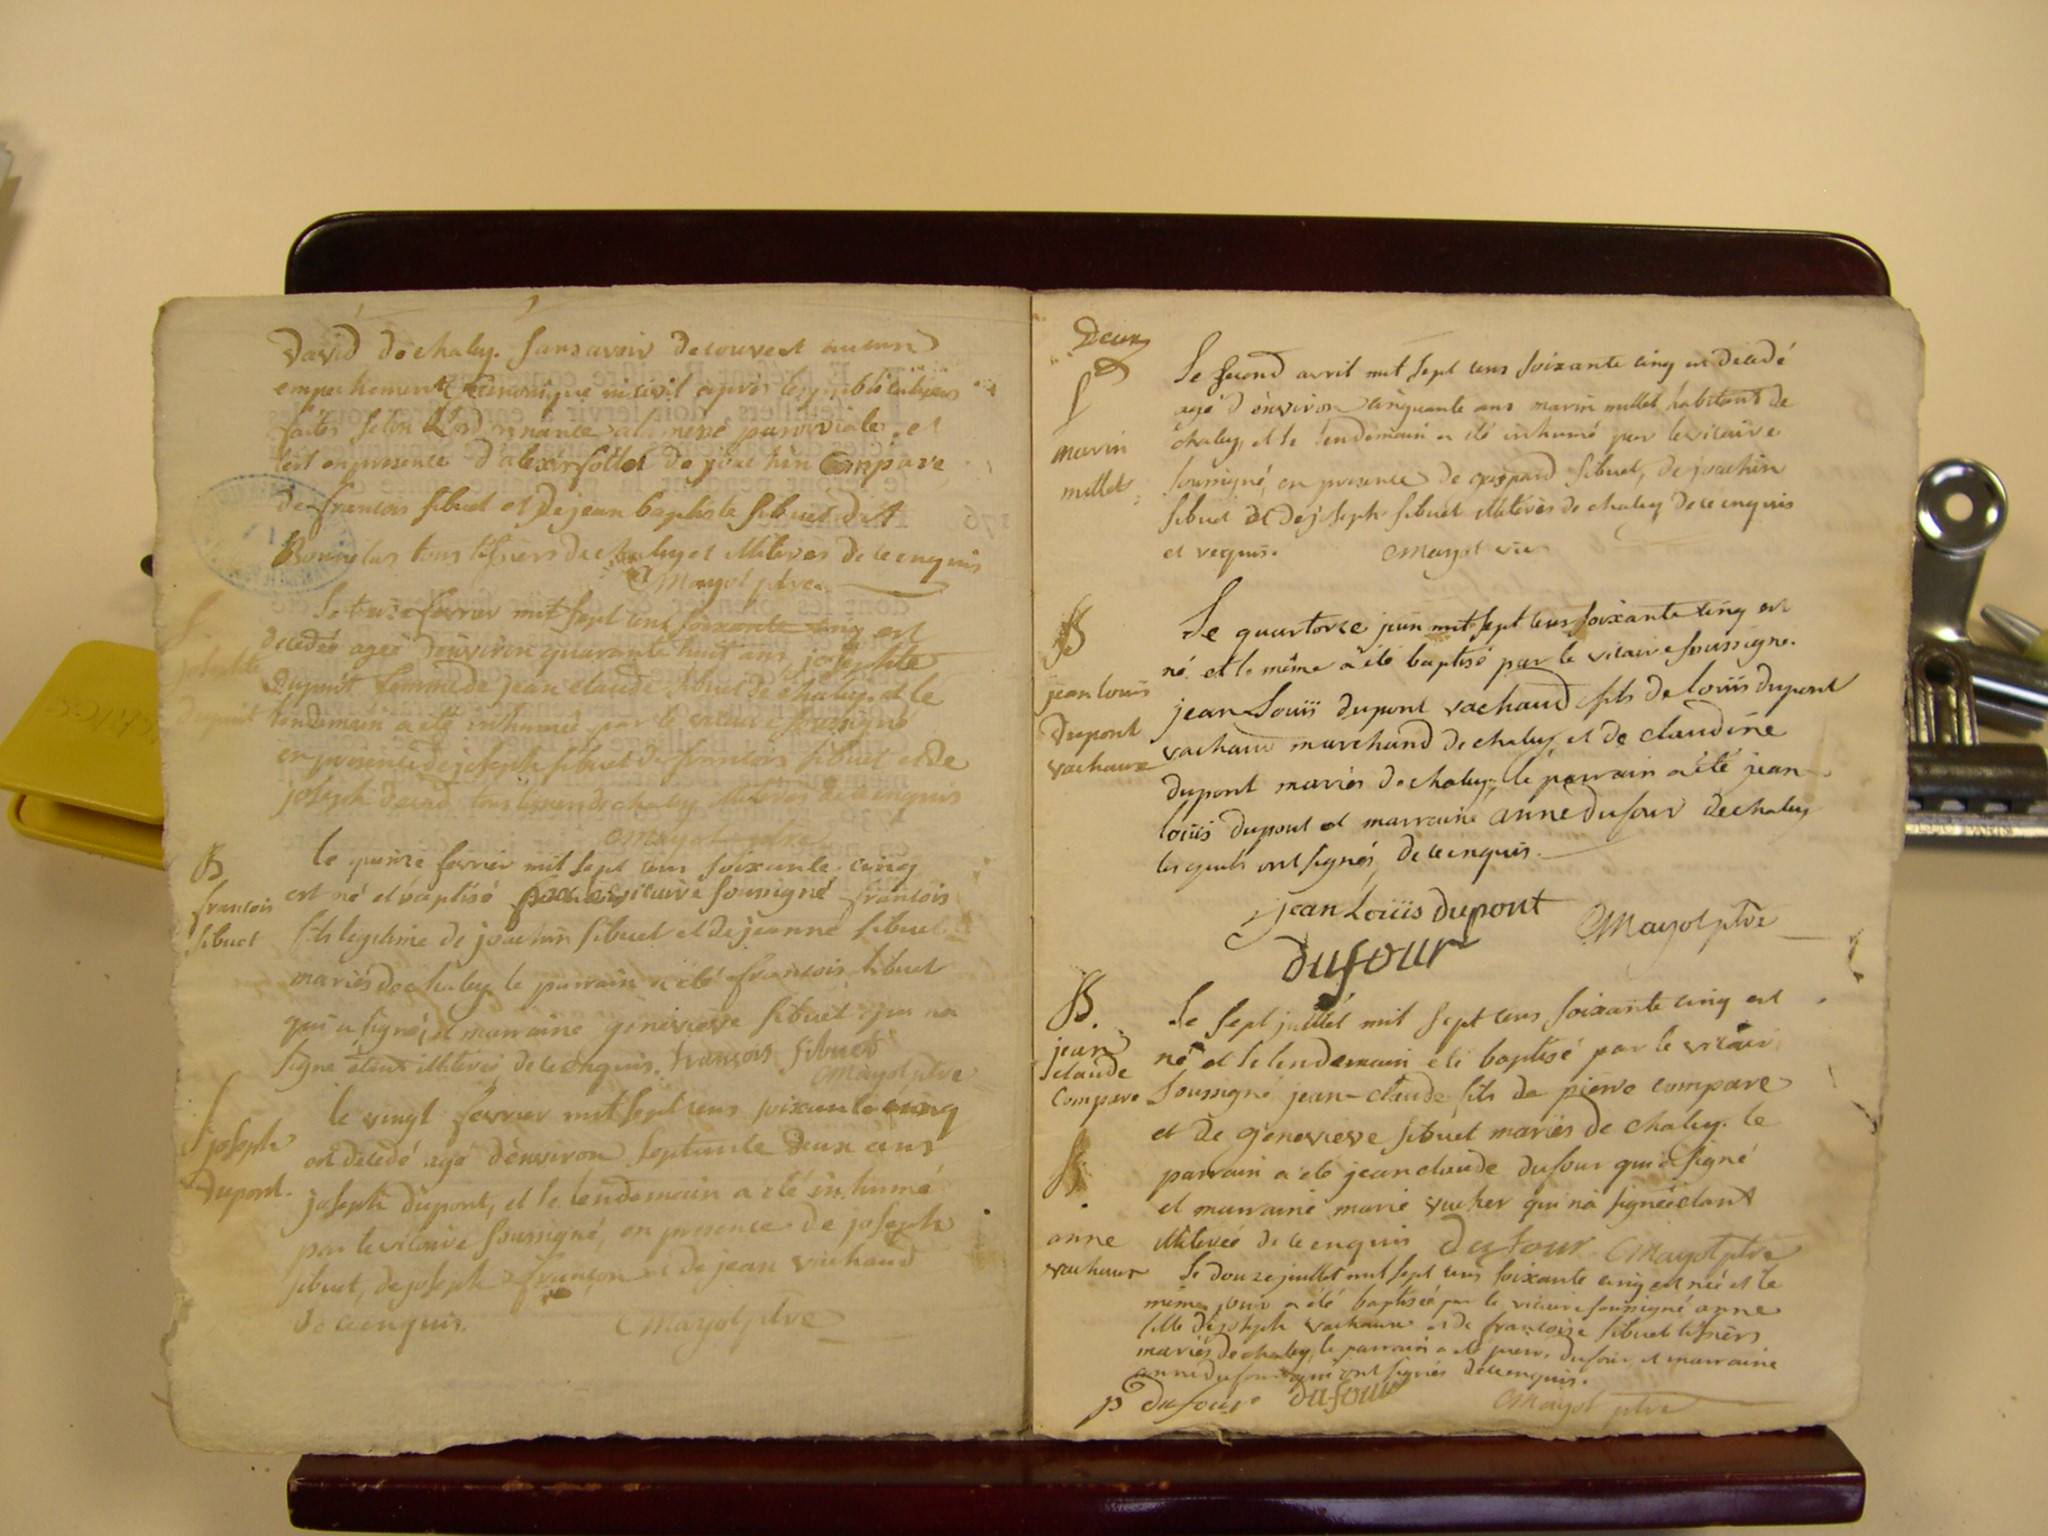 David de chaley. sans avoir decouvert aucun
empechement canonique ni civil après les publications
faites selon l'ordonnance a la messe paroissiale. et
c'est en presence d'alexis sottet de joachin Compare
de francois sibuet et de jean baptiste sibuet dit
tous tissiers de chaley et illiteres de ce enquis
Mayol ptre.
S.
josephte
dupuit
Le treize fevrier mil sept cens soixante cinq est
decedée agée d'environ quarante huit ans josephte
dupuit femme de jean claude sibuet de chaley. et le
lendemain a été inhumée par le vicaire soussigné
en presence de joseph sibuet de francois sibuet et de
joseph david tous de chaley illiteres de ce enquis
Mayol ptre
B
francois
sibuet
le quinze fevrier mil sept cens soixante cinq
est né et baptisé par le vicaire soussigné francois
fils legitime de joachin sibuet et de jeanne sibuet
mariés de chaley le parrain a été francois sibuet
qui a signé, et marraine genevieve sibuet qui na
signé étant illiterée de ce enquis. francois sibuet
Mayol ptre
S
joseph
dupont.
le vingt fevrier mil sept cens soixante cinq
est decedé agé d'environ septante deux ans
joseph dupont, et le lendemain a été inhumé
par le vicaire soussigné, en presence de joseph
sibuet, de joseph françon et de jean vachaud
de ce enquis.
Mayol ptre
Deux
S
marin
millet
Le second avril mil sept cens soixante cinq est decedé
agé d'environ cinquante ans marin millet habitant de
chaley, et le lendemain a été inhumé par le vicaire
soussigné, en presence de gaspard sibuet, de joachin
sibuet et de joseph sibuet illiteres de chaley de ce enquis
et requis. Mayol vic
B
jean louis
Dupont
vachaux
Le quatorze juin mil sept cens soixante cinq est
né et le même a été baptisé par le vicaire soussigné.
jean Louis dupont vachaud fils de louis dupont
vachaud marchand de chaley, et de claudine
dupont mariés de chaley, le parrain a été jean
louis dupont et marraine anne dufour de chaley
lesquels ont signés, de ce enquis.
jean Louis dupont
Mayol ptre
dufour
B.
jean
claude
Compare
Le sept juillet mil sept cens soixante cinq est
né et le lendemain été baptisé par le vicair
soussigné jean-claude fils de pierre compare
et de genevieve sibuet mariés de chaley. le
parrain a été jean claude dufour qui a signé
et marraine marie vucher qui na signée étant
illiterée de ce enquis dufour Mayol ptre
B
anne
vachaux
Le douze juillet mil sept cens soixante cinq est née et le
même jour a été baptisée par le vicaire soussigné anne
fille de joseph vachaux et de francoise sibuet tissiers
mariés de chaley, le parrain a été pierre dufour, et marraine
anne dufour qui ont signés de ce enquis.
p dufour dufour
Mayol ptre